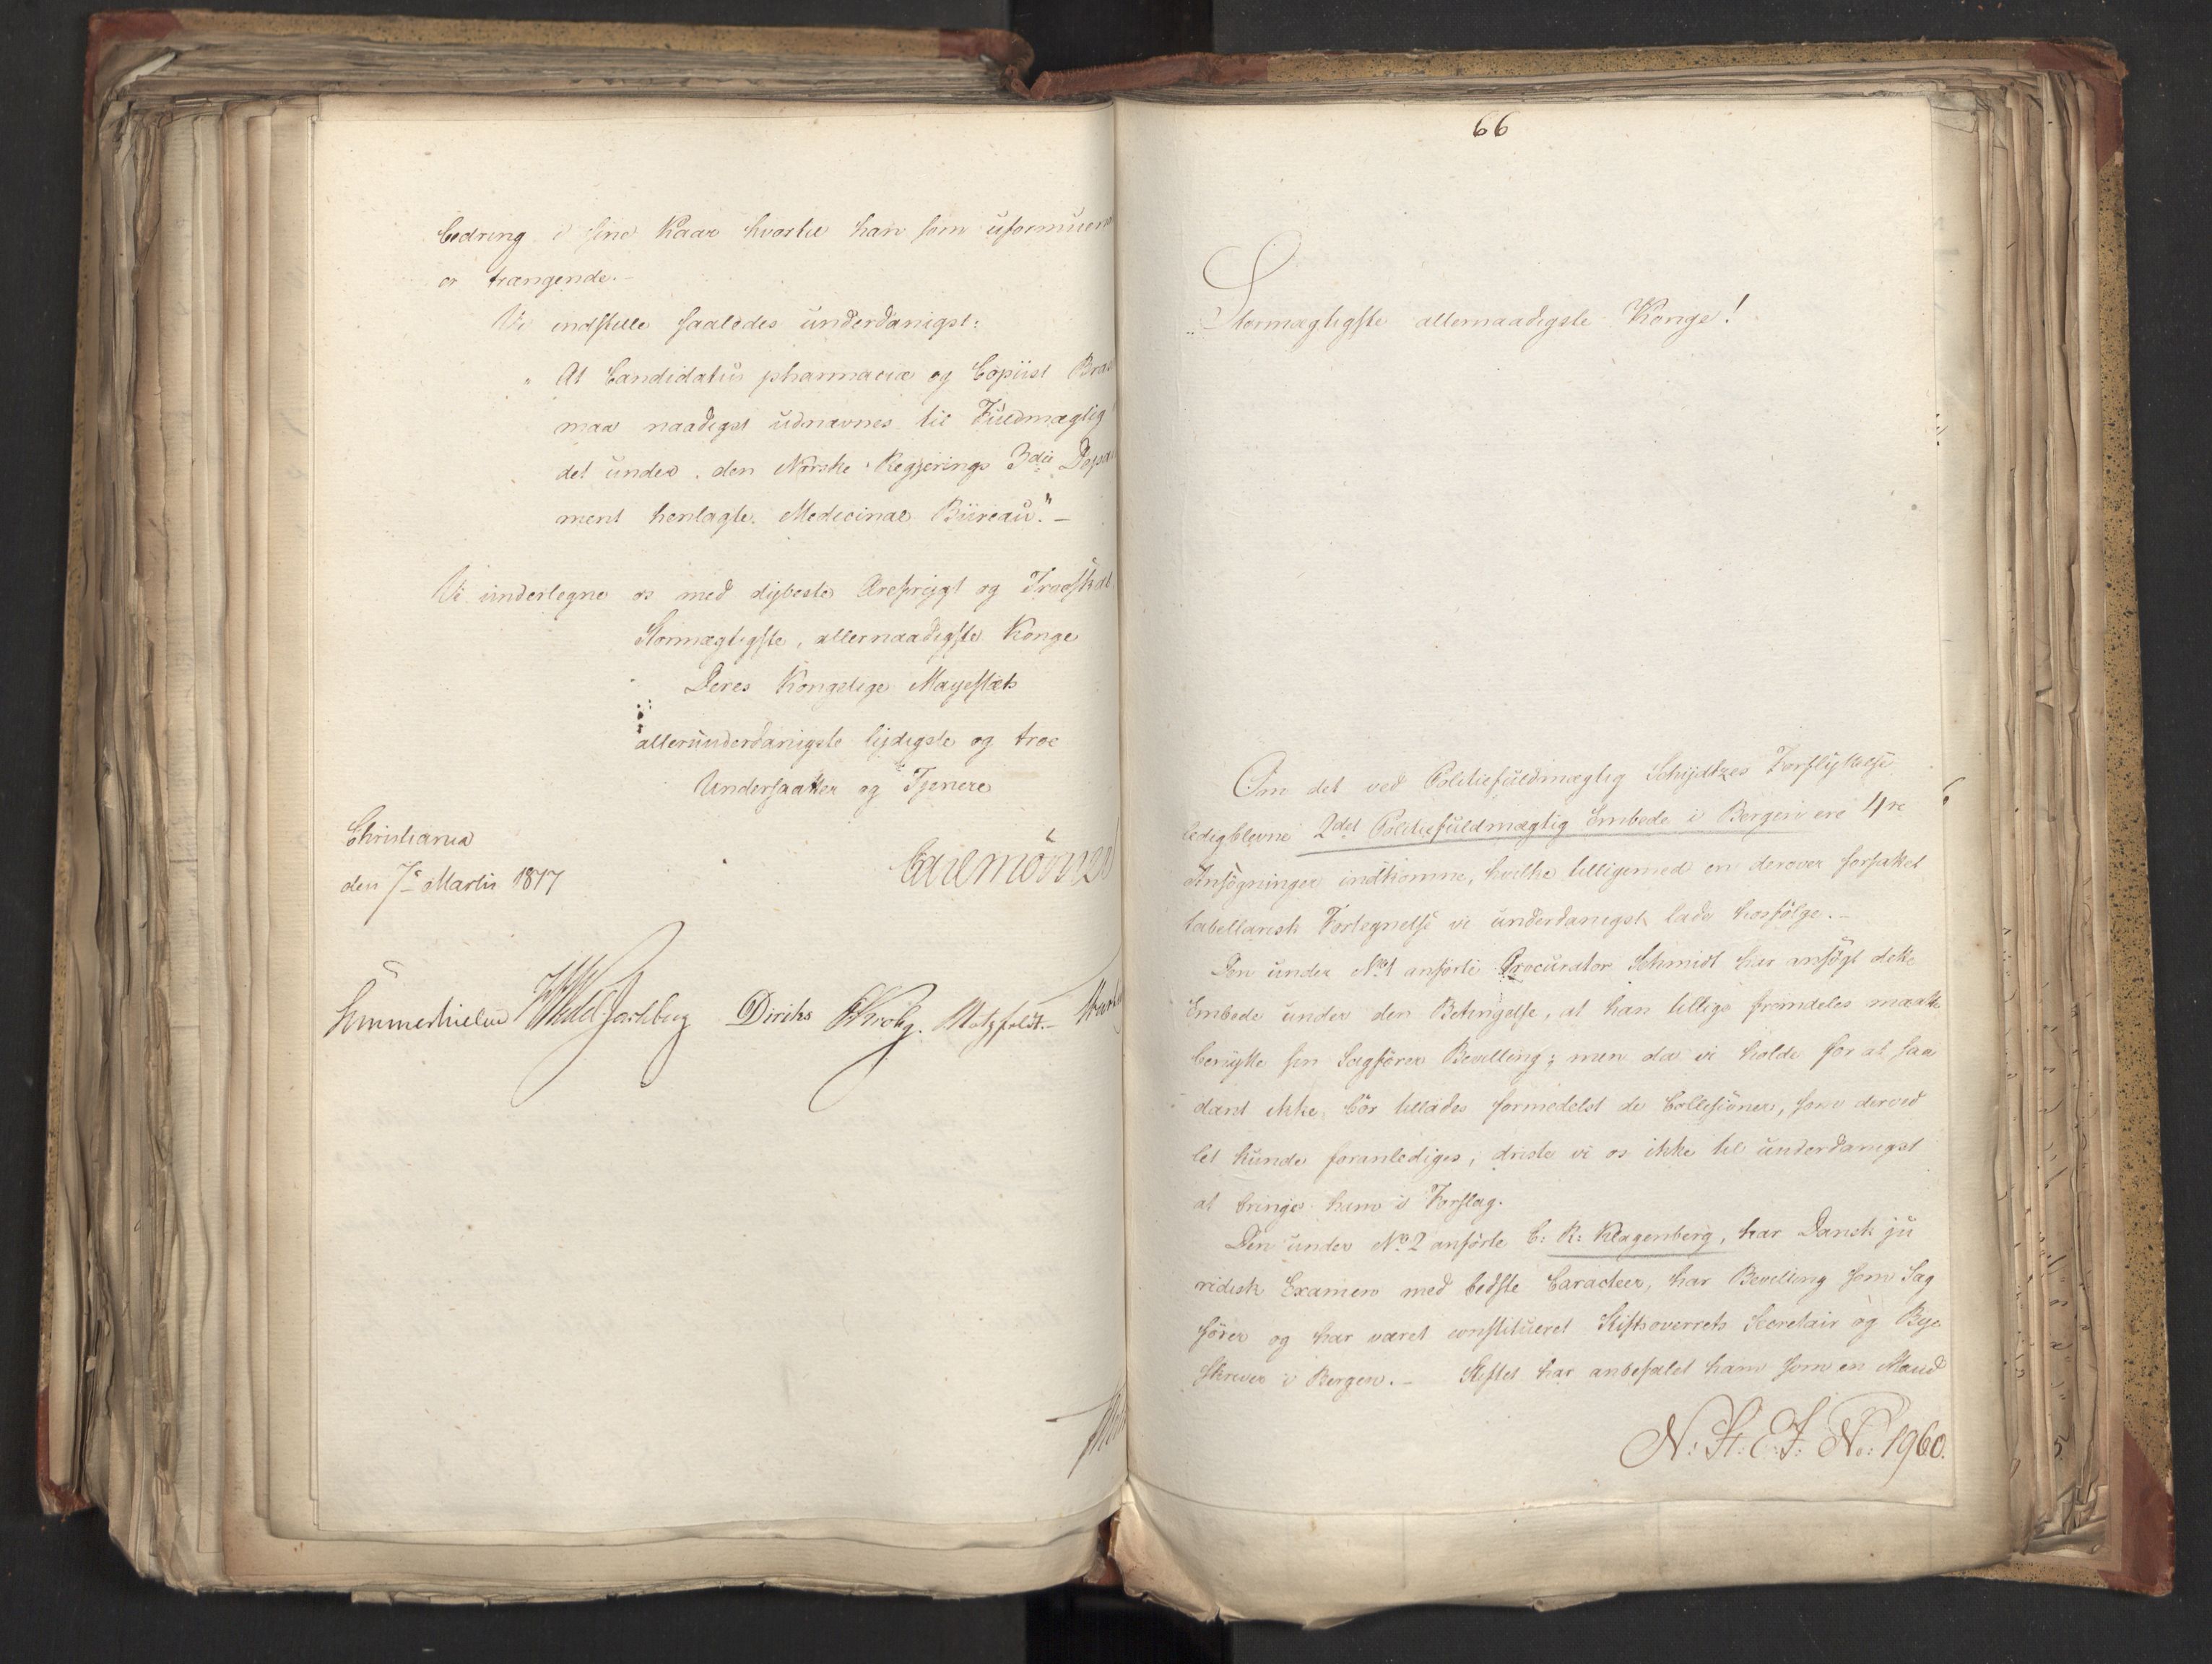 bedring i sine Kaar hvortil han som uformuen
er trængende.-
Vi indstille saaledes underdanigst:
" At Candidatus pharmacia og Copiist Bra
maa naadigst udnævnes til Fuldmægtig
det under den Norske Regjerings 3die Depar
ment henlagte Medicinal Büreau."-
Vi undertegne os med dybeste Ærefrygt og Troeskab
Stormægtigste, allernaadigste Konge
Deres Kongelige Mayestæts
allerunderdanigste lydigste og troe
Undersaatter og Tjenere
Christiania
den 7de Martii 1817
Carl Mörner
Sommerhielm Wedel Jarlsberg Diriks Krohg. Motzfeldt.-
66
Stormægtigste allernaadigste Konge!
Om det ved Politiefuldmægtig Schydtzes Forflyttelse
ledigblevne 2det Politiefuldmægtig Embede i Bergen ere 4re
Ansøgninger indkomne, hvilke tilligemed en derover forfattet
tabellarisk Fortegnelse vi underdanigst lade hosfølge.-
Den under No 1 anførte Procurator Schmidt har ansøgt dette
Embede under den Betingelse, at han tillige fremdeles maatte
benytte sin Sagfører Bevilling; men da vi holde for at saa
dant ikke bør tillades formedelst de Collisioner, som derved
let kunde foranlediges, driste vi os ikke til underdanigst
at bringe ham i Forslag.
Den under No 2 anførte C: K: Klagenberg, har Dansk ju
ridisk Examen med bedste Caracteer, har Bevilling som Sag
fører og har været constitueret Stiftsoverrets Secretair og Bye
skriver i Bergen.- Stiftet har anbefalet ham som en Mand
N: St: E: J: No: 1960.